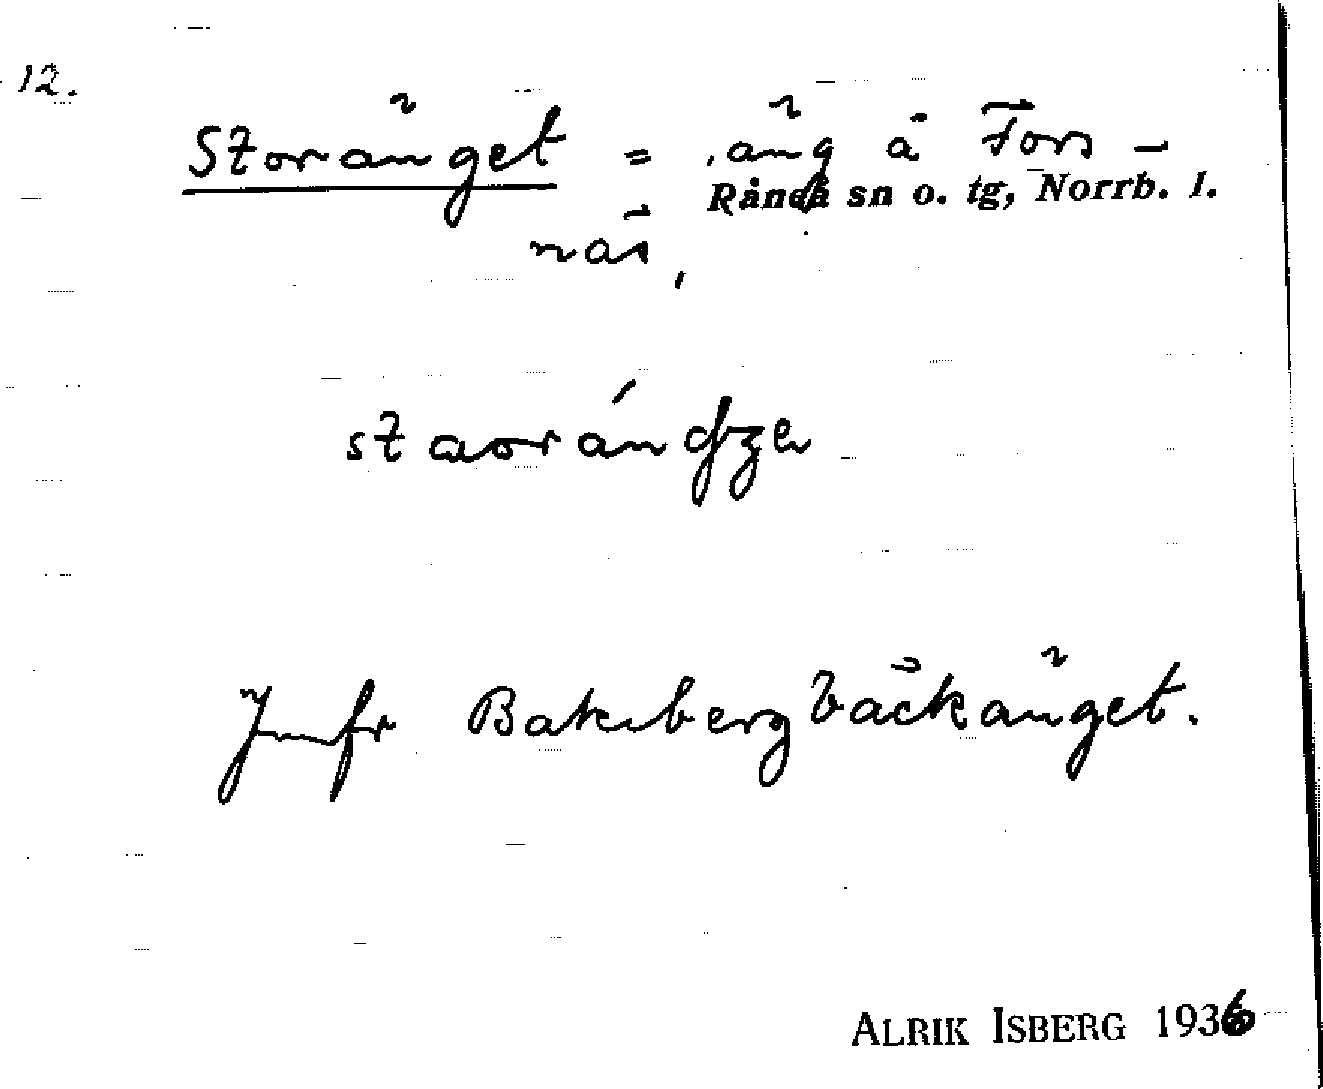 12.
Storänget = äng å Fors-
Råneå sn o. tg, Norrb. l.
näs,
Jmfr Baksbergbäckänget.
ALRIK ISBERG 1936